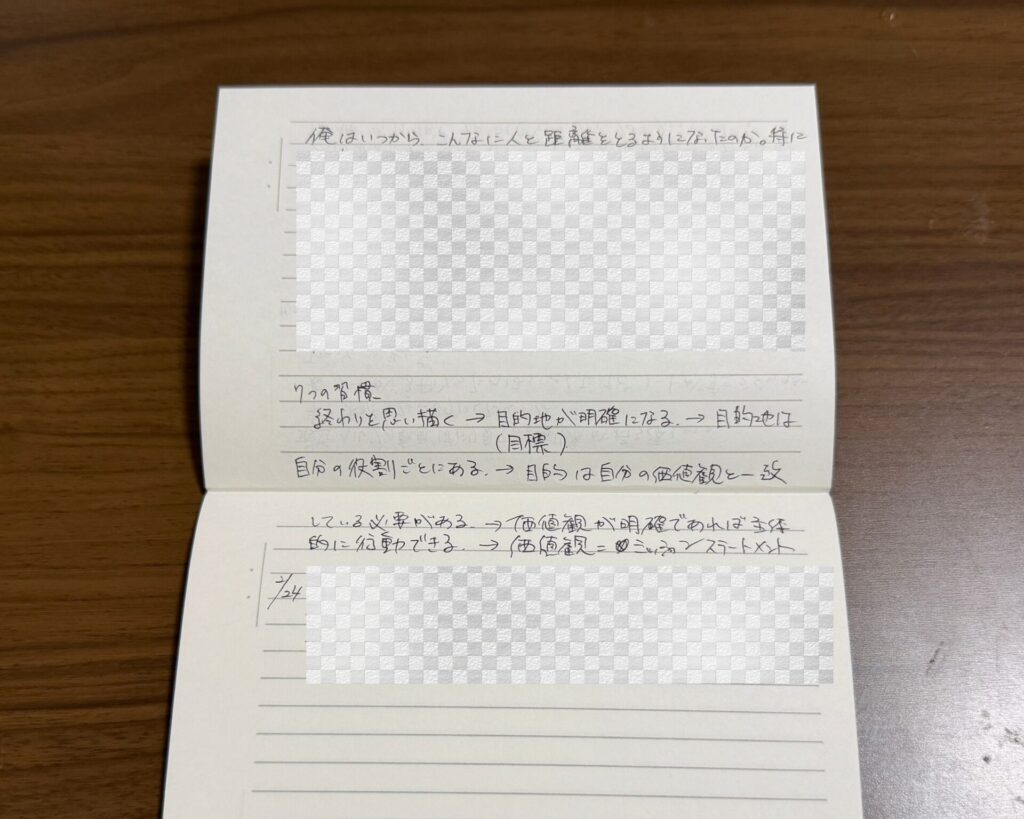 俺はいつから、こんなに人と距離をとるようになったのか。特に
7つの習慣
終わりを思い描く → 目的地が明確になる. → 目的地は
(目標)
自分の役割ごとにある. → 目的は自分の価値観と一致
している必要がある. → 価値観が明確であれば主体
的に行動できる. → 価値観 = ミッションステートメント
2/24